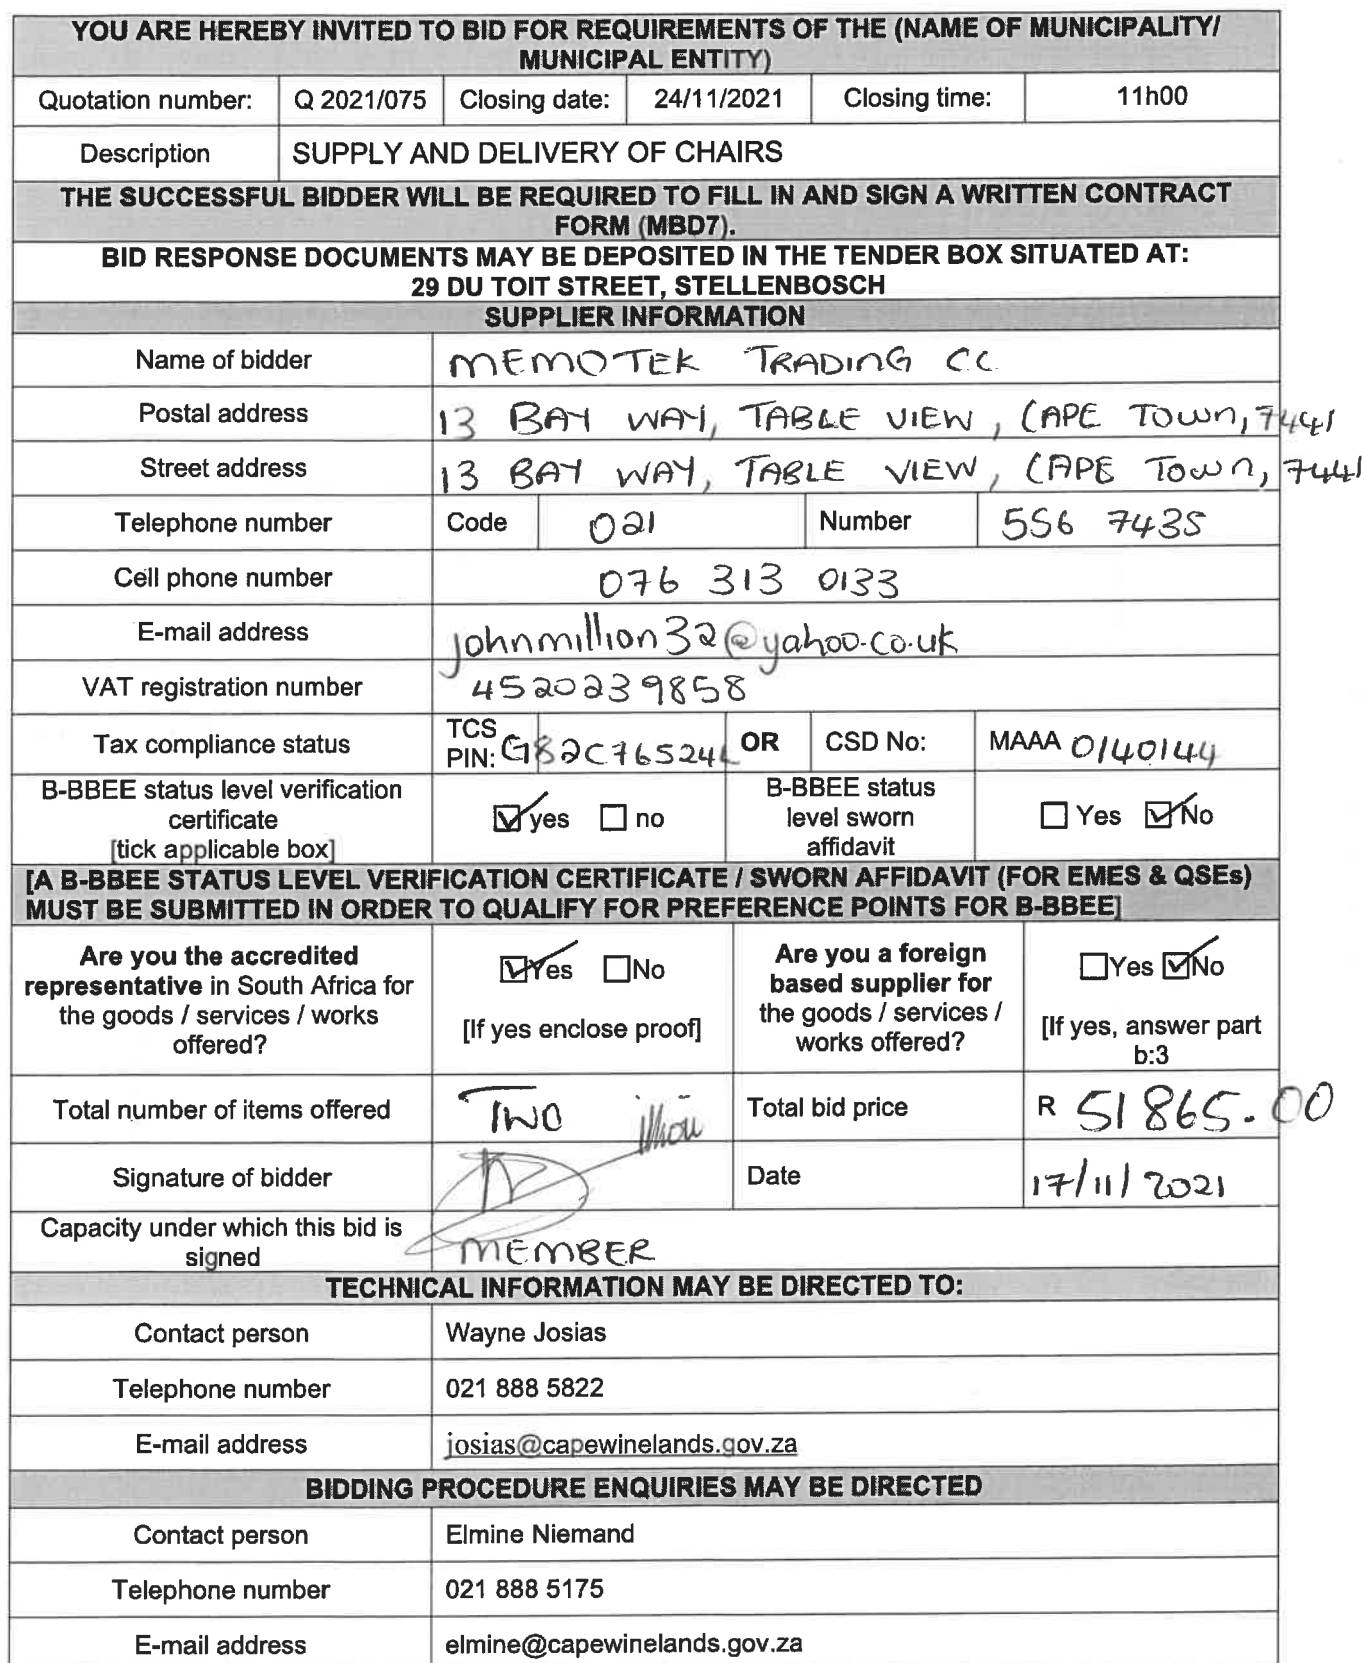 YOU ARE HEREBY INVITED TO BID FOR REQUIREMENTS OF THE (NAME OF MUNICIPALITY/
MUNICIPAL ENTITY)
Quotation number: Q 2021/075 Closing date: 24/11/2021 Closing time: 11h00
Description SUPPLY AND DELIVERY OF CHAIRS
THE SUCCESSFUL BIDDER WILL BE REQUIRED TO FILL IN AND SIGN A WRITTEN CONTRACT
FORM (MBD7).
BID RESPONSE DOCUMENTS MAY BE DEPOSITED IN THE TENDER BOX SITUATED AT:
29 DU TOIT STREET, STELLENBOSCH
SUPPLIER INFORMATION
Name of bidder MEMOTEK TRADING CC
Postal address 13 BAY WAY, TABLE VIEW, CAPE TOWN, 7441
Street address 13 BAY WAY, TABLE VIEW, CAPE TOWN, 7441
Telephone number Code 021 Number 556 7435
Cell phone number 076 313 0133
E-mail address johnmillion32@yahoo.co.uk
VAT registration number 4520239858
Tax compliance status TCS PIN: G82C76524L OR CSD No: MAAA 0140144
B-BBEE status level verification
certificate
[tick applicable box]
yes no
B-BBEE status
level sworn
affidavit
Yes No
[A B-BBEE STATUS LEVEL VERIFICATION CERTIFICATE / SWORN AFFIDAVIT (FOR EMES & QSEs)
MUST BE SUBMITTED IN ORDER TO QUALIFY FOR PREFERENCE POINTS FOR B-BBEE]
Are you the accredited
representative in South Africa for
the goods / services / works
offered?
Yes No
[If yes enclose proof]
Are you a foreign
based supplier for
the goods / services /
works offered?
Yes No
[If yes, answer part
b:3
Total number of items offered TWO Total bid price R 51865.00
Signature of bidder Date 17/11/2021
Capacity under which this bid is
signed
MEMBER
TECHNICAL INFORMATION MAY BE DIRECTED TO:
Contact person Wayne Josias
Telephone number 021 888 5822
E-mail address josias@capewinelands.gov.za
BIDDING PROCEDURE ENQUIRIES MAY BE DIRECTED
Contact person Elmine Niemand
Telephone number 021 888 5175
E-mail address elmine@capewinelands.gov.za